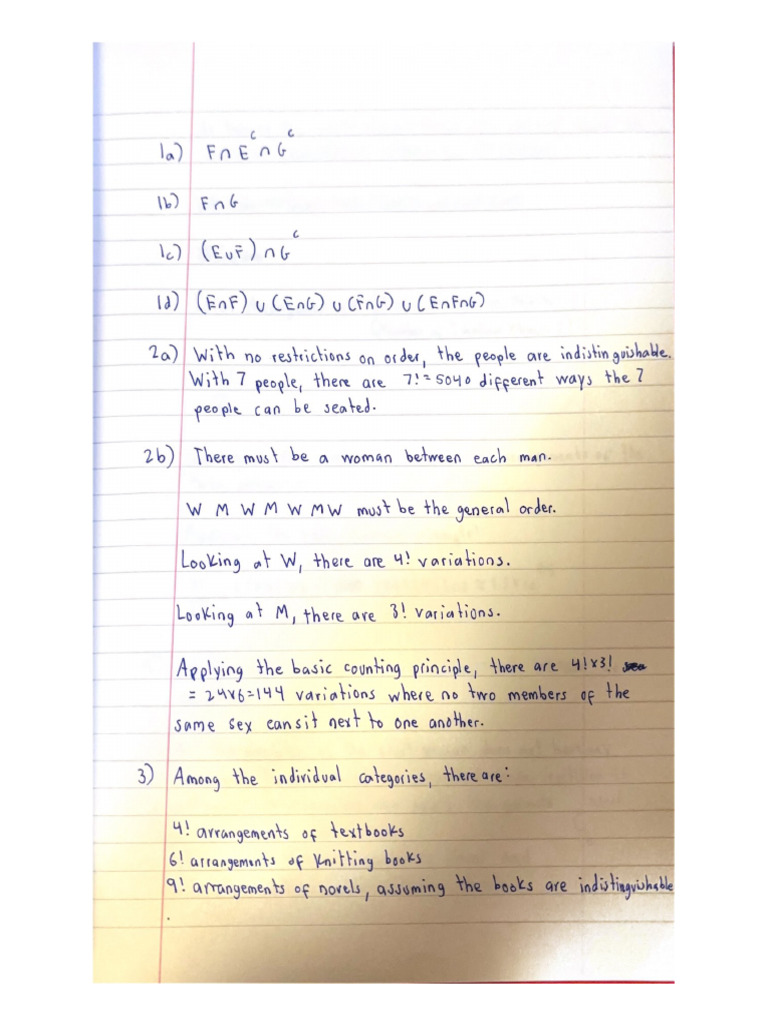 1a) F∩E^c∩G^c
1b) F∩G
1c) (E∪F)∩G^c
1d) (E∩F)∪(E∩G)∪(F∩G)∪(E∩F∩G)
2a) With no restrictions on order, the people are indistinguishable.
With 7 people, there are 7!=5040 different ways the 7
people can be seated.
2b) There must be a woman between each man.
W M W M W M W must be the general order.
Looking at W, there are 4! variations.
Looking at M, there are 3! variations.
Applying the basic counting principle, there are 4!×3!
= 24×6=144 variations where no two members of the
same sex can sit next to one another.
3) Among the individual categories, there are:
4! arrangements of textbooks
6! arrangements of Knitting books
9! arrangements of novels, assuming the books are indistinguishable
.